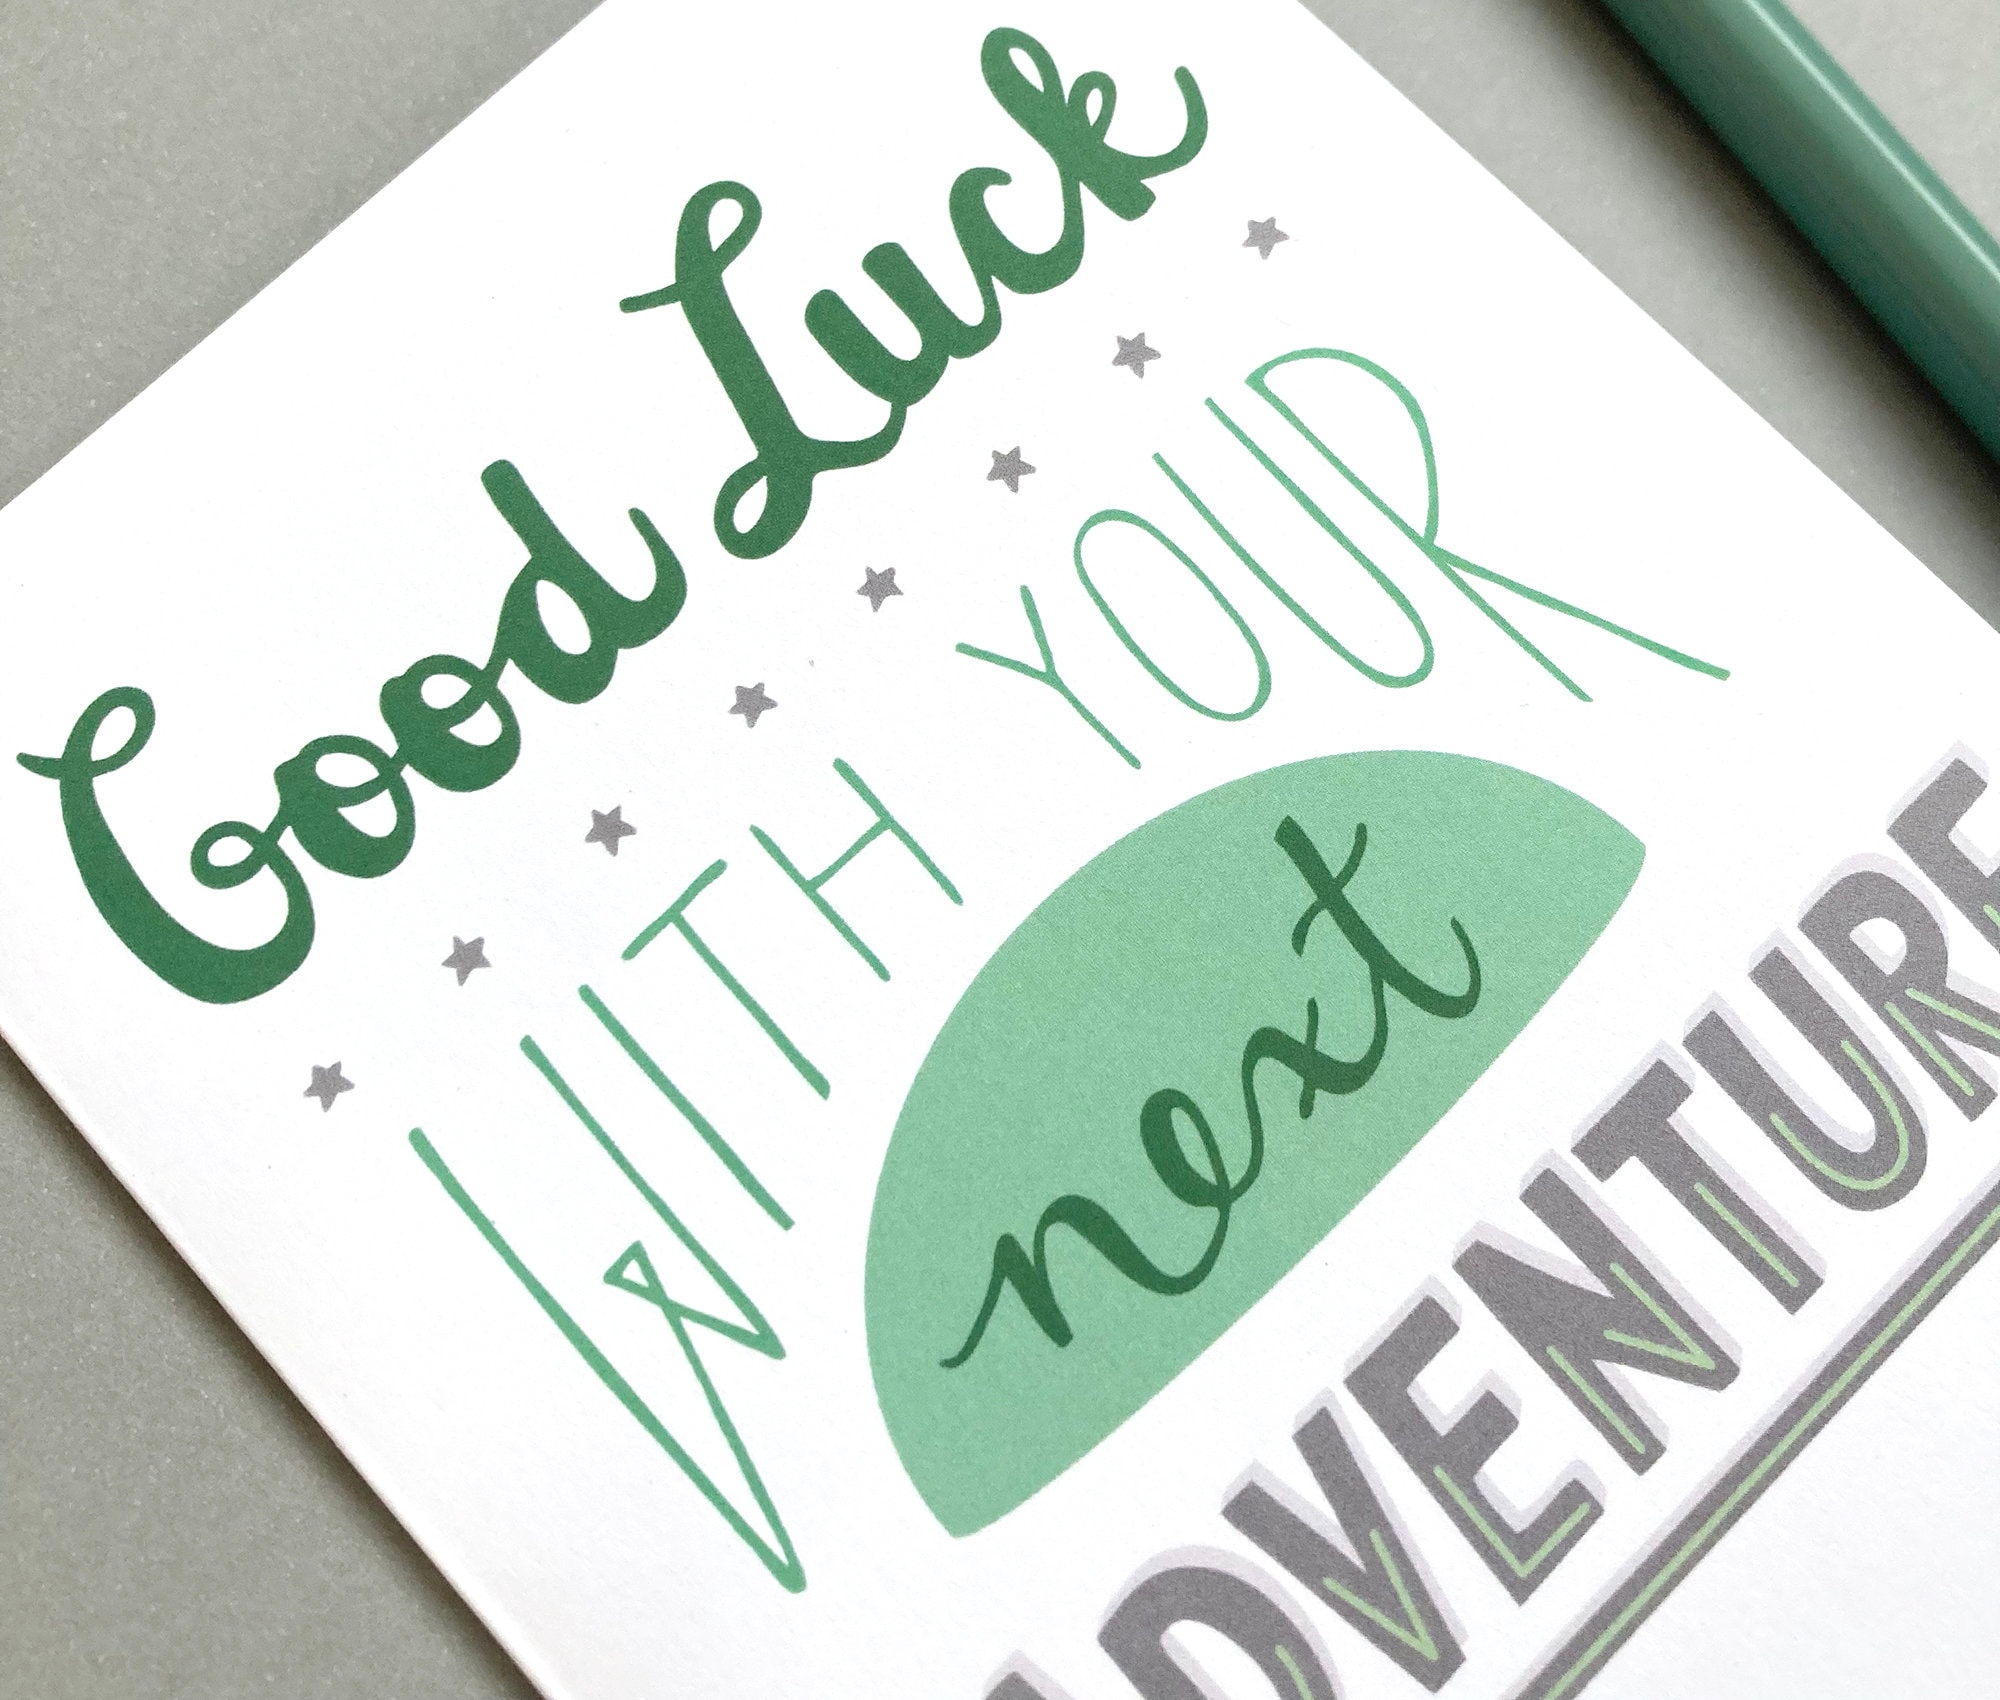 Good Luck
WITH YOUR
next
ADVENTURE